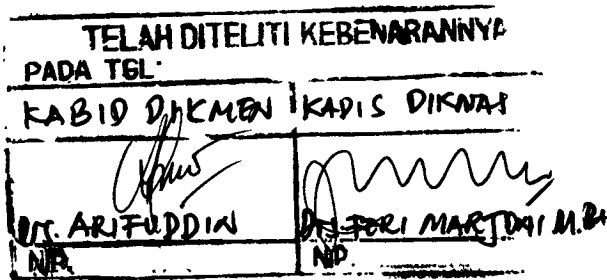 TELAH DITELITI KEBENARANNYA
PADA TGL.
KABID DIKMEN KADIS DIKNAS
Drs. ARIFUDDIN Drs. FERI
NIP. NIP.